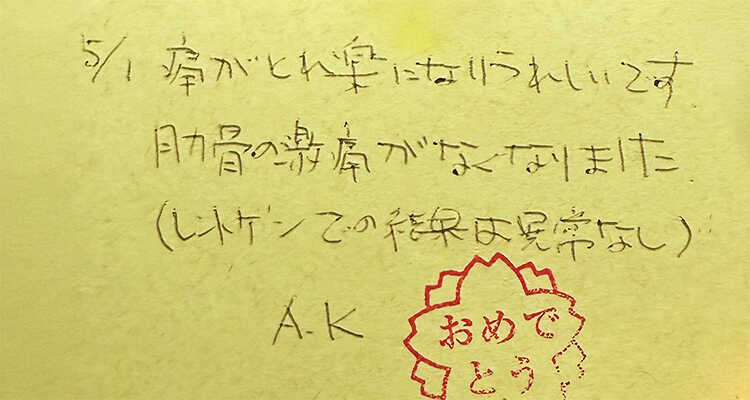 5/1 痛がとれ楽になりうれしいです
肋骨の激痛がなくなりました
(レントゲンでの結果は異常なし)
A.K
おめで
とう